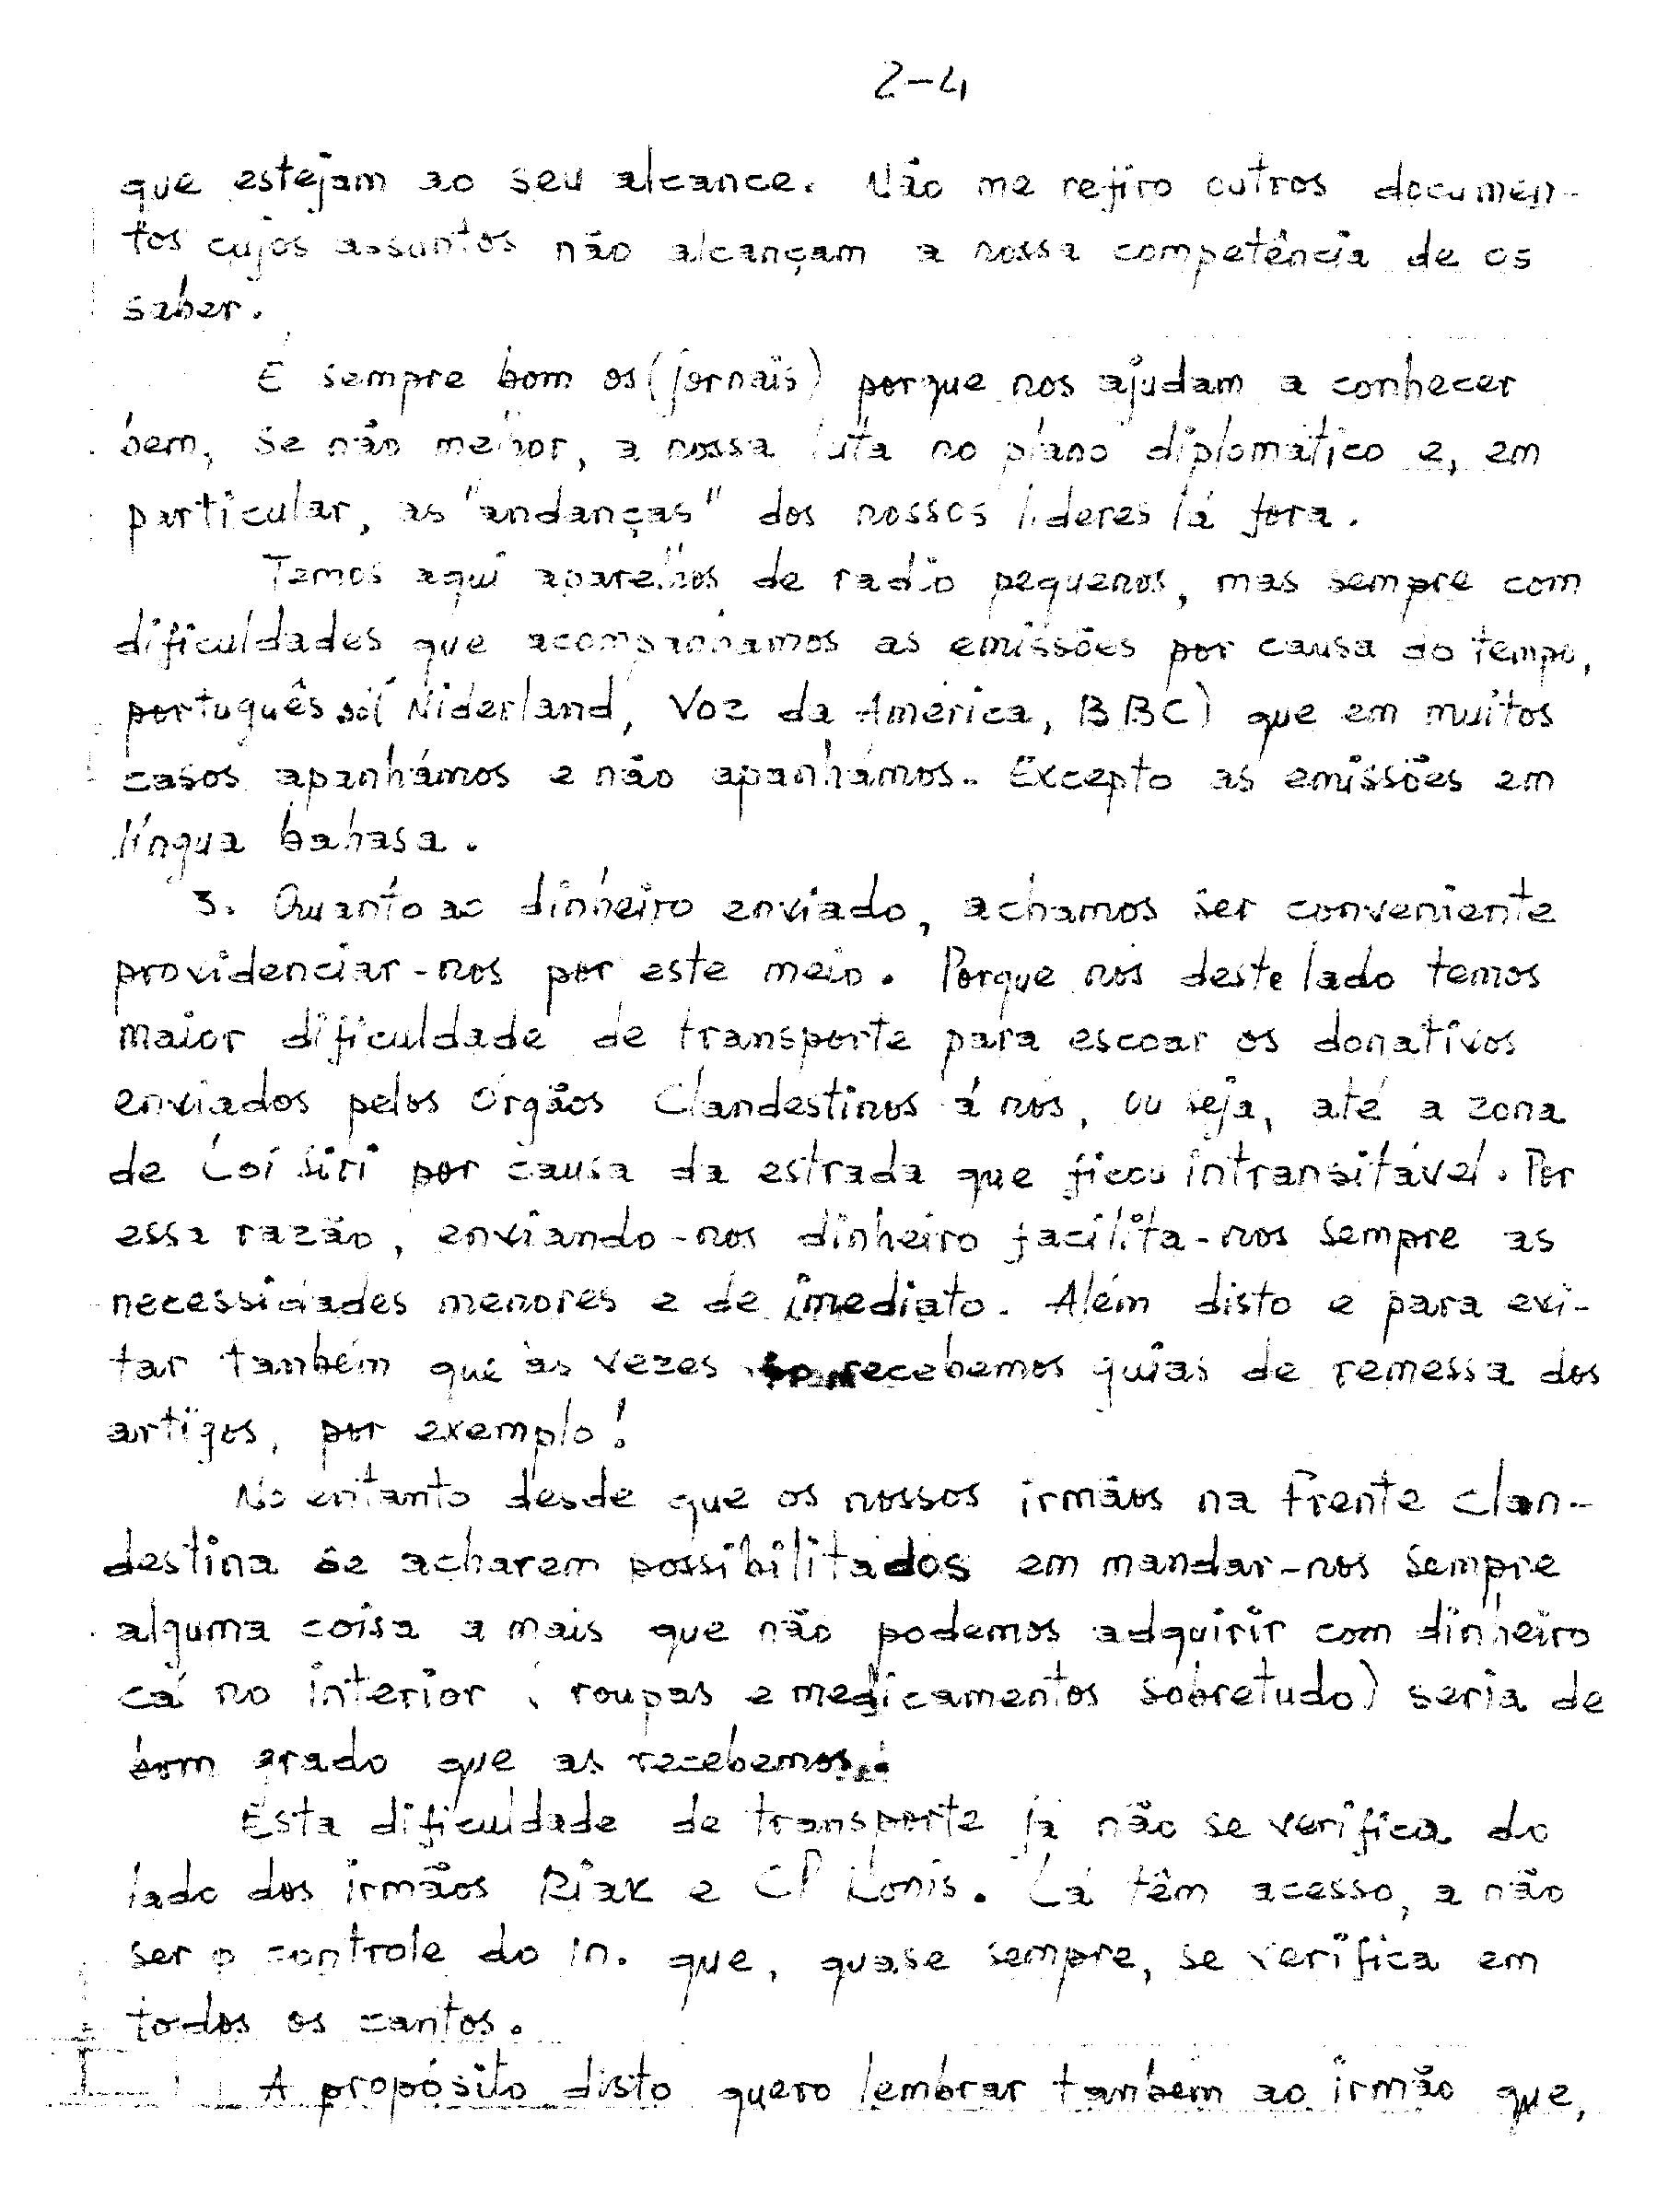 2-4
que estejam ao seu alcance. Não me refiro outros documen-
tos cujos assuntos não alcançam a nossa competência de os
saber.
É sempre bom os (jornais) porque nos ajudam a conhecer
bem, se não melhor, a nossa luta no plano diplomático e, em
particular, as "andanças" dos nossos lideres lá fora.
Temos aqui aparelhos de radio pequenos, mas sempre com
dificuldades que acompanhamos as emissões por causa do tempo,
português só (Niderland, Voz da América, BBC) que em muitos
casos apanhámos e não apanhámos. Excepto as emissões em
língua bahasa.
3. Quanto ao dinheiro enviado, achamos ser conveniente
providenciar-nos por este meio. Porque nós deste lado temos
maior dificuldade de transporte para escoar os donativos
enviados pelos Órgãos Clandestinos á nós, ou seja, até a zona
de Loi Siri por causa da estrada que ficou intransitável. Por
essa razão, enviando-nos dinheiro facilita-nos sempre as
necessidades menores e de imediato. Além disto e para evi-
tar também que às vezes recebemos guias de remessa dos
artigos, por exemplo!
No entanto desde que os nossos irmãos na Frente Clan-
destina se acharem possibilitados em mandar-nos sempre
alguma coisa a mais que não podemos adquirir com dinheiro
cá no interior (roupas e medicamentos sobretudo) seria de
bom grado que as recebemos.
Esta dificuldade de transporte já não se verifica do
lado dos irmãos Riak e CP Konis. Lá têm acesso, a não
ser o controle do in. que, quase sempre, se verifica em
todos os cantos.
A propósito disto quero lembrar também ao irmão que,